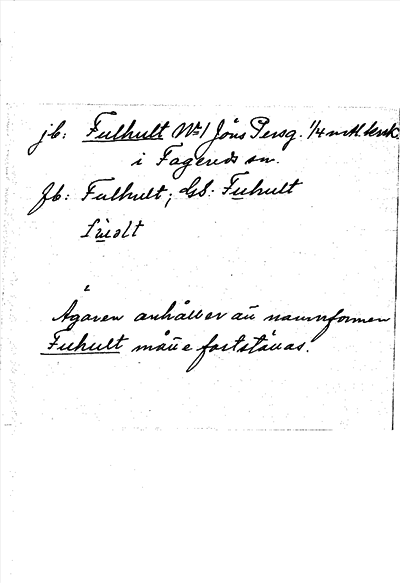 jb: Fulhult No 1 Jöns Persg. 1/4 mtl krsk.
i Fagereds sn.
Jb: Fulhult; GS: Fuhult
Ägaren anhåller att namnformen
Fuhult måtte fastställas.